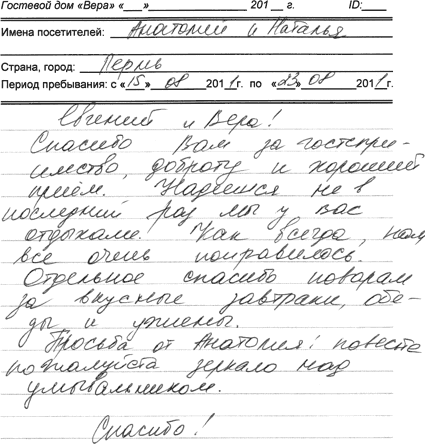 Гостевой дом «Вера» «___»____________ 201__ г. ID:____
Имена посетителей: Анатолий и Наталья
Страна, город: Пермь
Период пребывания: с «15» 08 2011г. по «23» 08 2011г.
Евгений и Вера!
Спасибо Вам за гостепри-
имство, доброту и хороший
приём. Надеемся не в
последний раз мы у вас
отдыхаем. Как всегда, нам
все очень понравилось.
Отдельное спасибо поварам
за вкусные завтраки, обе-
ды и ужины.
Просьба от Анатолия: повесте
пожалуйста зеркало над
умывальником.
Спасибо!